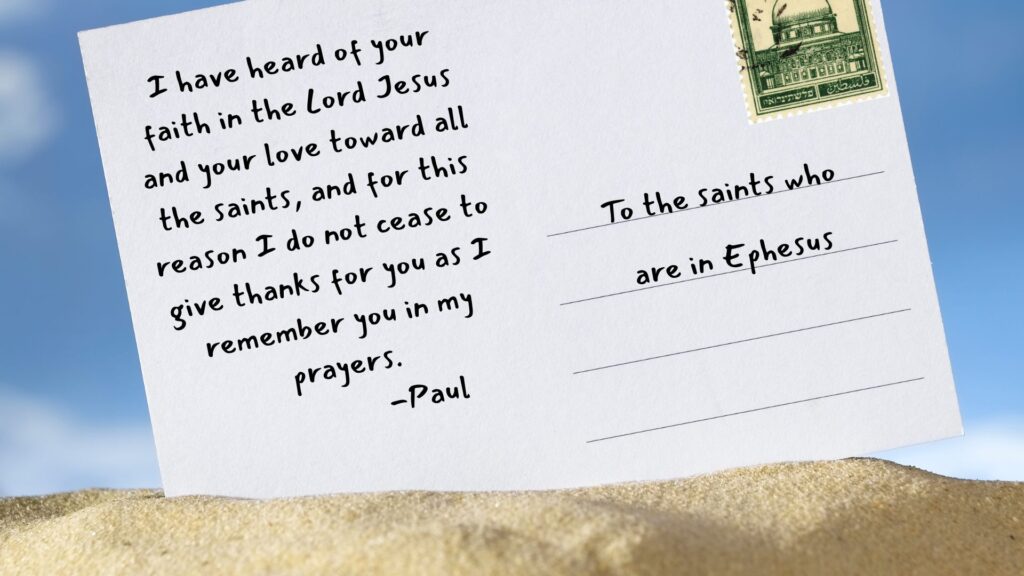 I have heard of your
faith in the Lord Jesus
and your love toward all
the saints, and for this
reason I do not cease to
give thanks for you as I
remember you in my
prayers.
-Paul
To the saints who
are in Ephesus